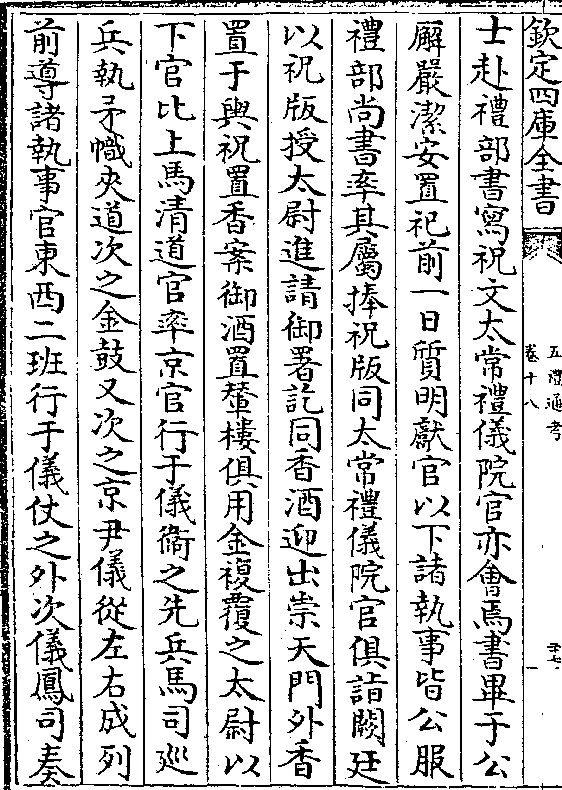 欽定四庫全書
五禮通考
卷十八
士赴禮部書寫祝文太常禮儀院官亦會焉書畢于公
廨嚴潔安置祀前一日質明獻官以下諸執事皆公服
禮部尚書率其屬捧祝版同太常禮儀院官俱詣闕廷
以祝版授太尉進請御署訖同香酒迎出崇天門外香
置于輿祝置香案御酒置輦樓俱用金複覆之太尉以
下官比上馬清道官率京官行于儀衛之先兵馬司廵
兵執矛幟夾道次之金鼓又次之京尹儀從左右成列
前導諸執事官東西二班行于儀仗之外次儀鳳司奏